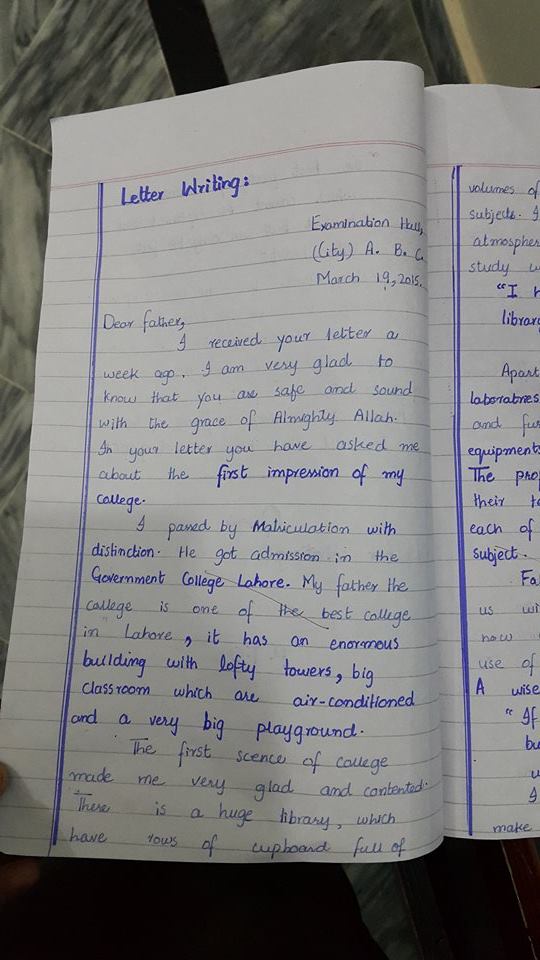 Letter Writing:
Examination Hall,
(City) A. B. C.
March 19, 2015.
Dear father,
I received your letter a
week ago. I am very glad to
know that you are safe and sound
with the grace of Almighty Allah.
In your letter you have asked me
about the first impression of my
college.
I passed by Matriculation with
distinction. He got admission in the
Government College Lahore. My father the
college is one of the best college
in Lahore, it has an enormous
building with lofty towers, big
classroom which are air-conditioned
and a very big playground.
The first scence of college
made me very glad and contented.
There is a huge library, which
have rows of cupboard full of
volumes of
subjects. I
atmospher
study w
"I h
librar
Apart
laborabries
and fu
equipment
The pro
their te
each of
subject.
Fa
us wi
now
use of
A wise
"If
bu
u
I
make